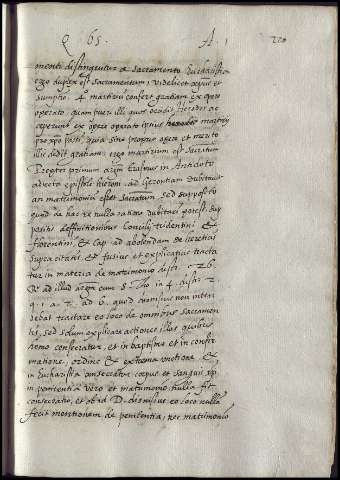 Q. 65. A. 1 220
menti distinguitur a sacramento Eucharistiæ
ergo duplex est sacramentum, videlicet corpus et
sumptio. 4º martirium confert gratiam ex opere
operato, quam pueri illi quos occidit Herodes ac
ceperunt ex opere operato ipsius martirij
pro xpo passi, quia sine proprio opere et merito
illis dedit gratiam: ergo martirium est sacramentum
Propter primum argum Erasmus in
adverso epistole hieroni. ad Gerontiam dubitavit
an matrimonium esset sacramentum, sed supposito
quod de hac re nulla ratione dubitari potest, sup
positis deffinitionibus Concilij tridentini, et
florentini, et cap. ad abolendam de hereticis
supra citatis, et fusius et explicatius tracta
tur in materia de matrimonio dist. 26.
Et ad illud argum cum S. Tho. in 4. dist. 2.
q. 1. a. 2. ad 6. quod dionisius non inten
debat tractare eo loco de omnibus sacramen
tis, sed solum explicare actiones illas quibus
homo consecratur, et in baptismo et in confir
matione, ordine et extrema unctione, et
in Eucharistia consecratur corpus et sanguis xpi
in penitentia vero et matrimonio nulla fit
consecratio, et ob id D. dionisius eo loco nulla
fecit mentionem de penitentia, nec matrimonio